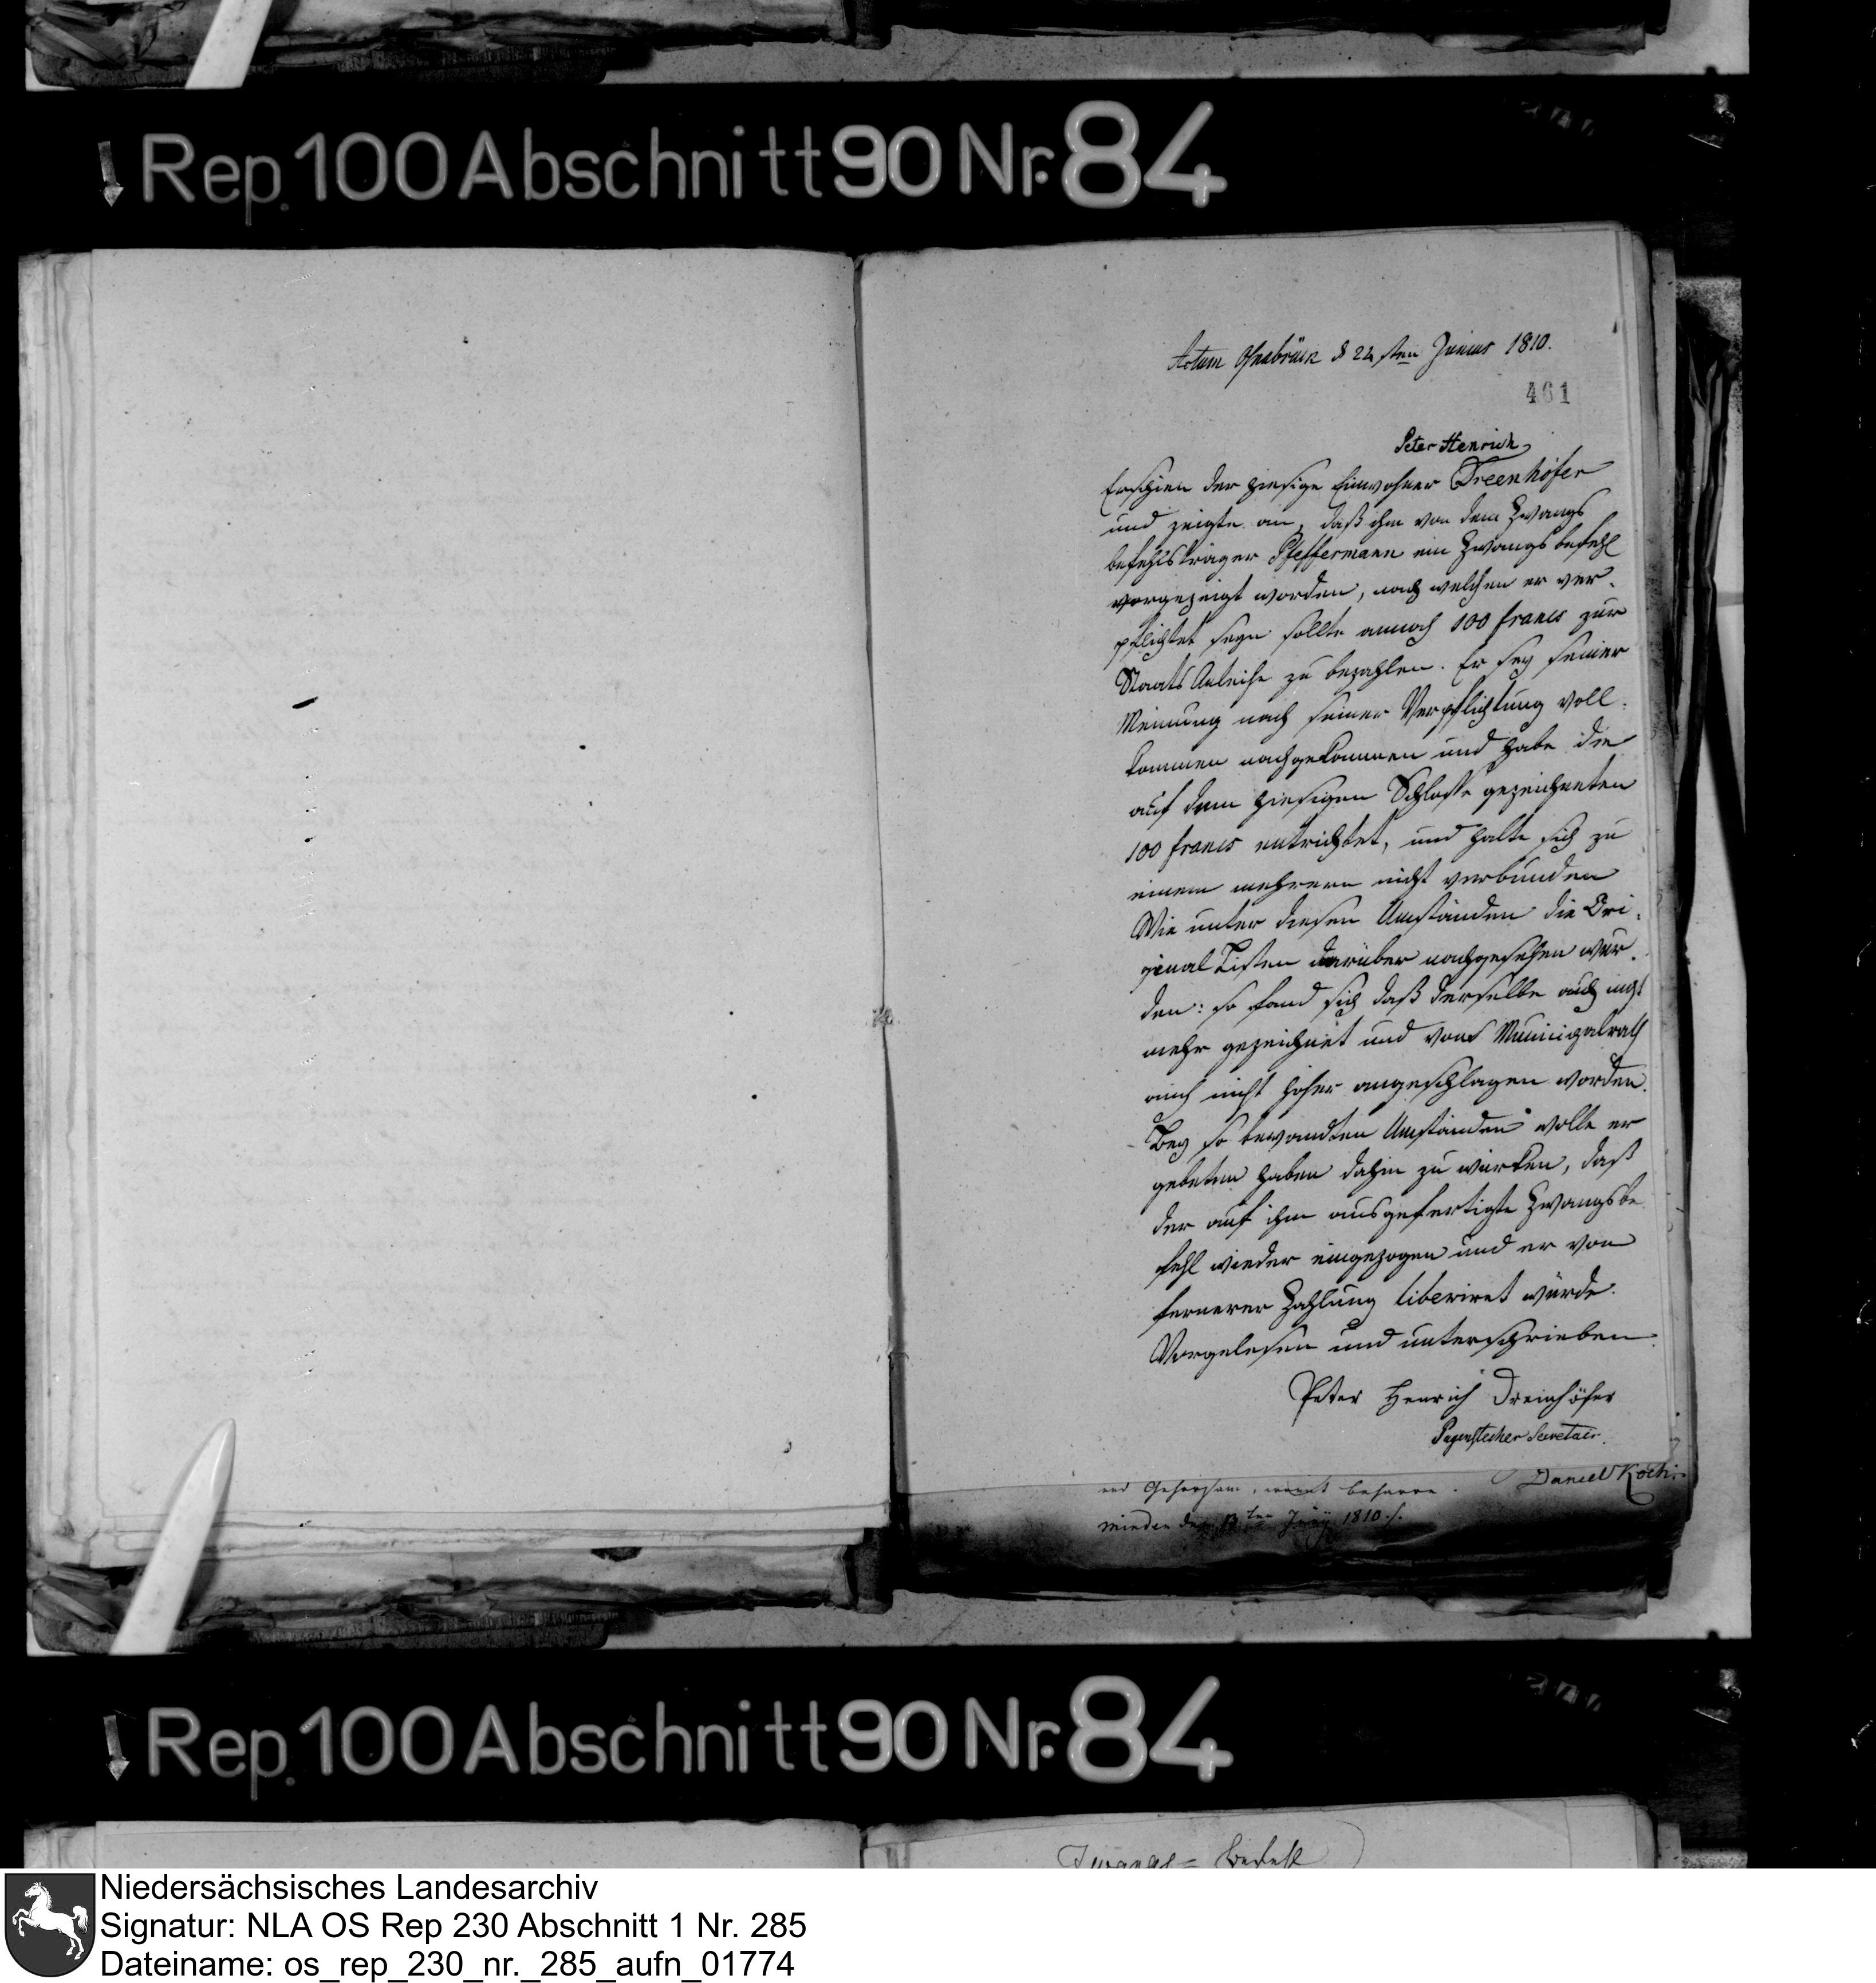 Rep. 100 Abschnitt 90 Nr. 84
Actum Osnabrück d 22sten Junius 1810.
461
Peter Henrich
Erschien der hiesige Einwohner Dreenhöfer
und zeigte an, daß ihm von dem Zwangs
befehlsträger Pfeffermann ein Zwangsbefehl
vorgezeigt worden, nach welchen er ver-
pflichtet seyn sollte annoch 100 francs zur
Staats Anleihe zu bezahlen. Er sey seiner
Meinung nach seiner Verpflichtung voll-
kommen nachgekommen und habe die
auf dem hiesigen Schlosse gezeichneten
100 francs entrichtet, und halte sich zu
einem mehrern nicht verbunden
Wie unter diesen Umständen die Ori-
ginal Listen darüber nachgesehen wur-
den: so fand sich daß derselbe auch nicht
mehr gezeichnet und vom Municipalrath
auch nicht höher angeschlagen worden.
Bey so bewandten Umständen wolle er
gebeten haben dahin zu würken, daß
der auf ihm ausgefertigte Zwangsbe
fehl wieder eingezogen und er von
fernerer Zahlung liberiret würde.
Vorgelesen und unterschrieben.
Peter Henrich Dreinhöfer
Pagenstecher Secretair.
Daniel Koch
und Gehorsam, womit beharre.
Minden den 13ten Juny 1810.
Rep. 100 Abschnitt 90 Nr. 84
Zwangs= Befehl
Niedersächsisches Landesarchiv
Signatur: NLA OS Rep 230 Abschnitt 1 Nr. 285
Dateiname: os_rep_230_nr._285_aufn_01774